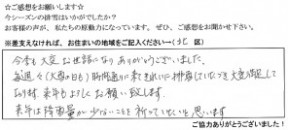 ☆ご感想をお願いします☆
今シーズンの排雪はいかがでしたか？
お客様の声が、私たちの原動力になっています。ぜひ、ご感想をお聞かせ下さい。
※差支えなければ、お住まいの地域をご記入ください→( 区)
今季も大変お世話になりありがとうございました。
毎週々(大雪の日も)時間通りに来てきれいに排雪していただき大変満足して
おります。来年もよろしくお願い致します。
来年は降雪量が少ないことを祈っていたいと思います
ご協力ありがとうございました！